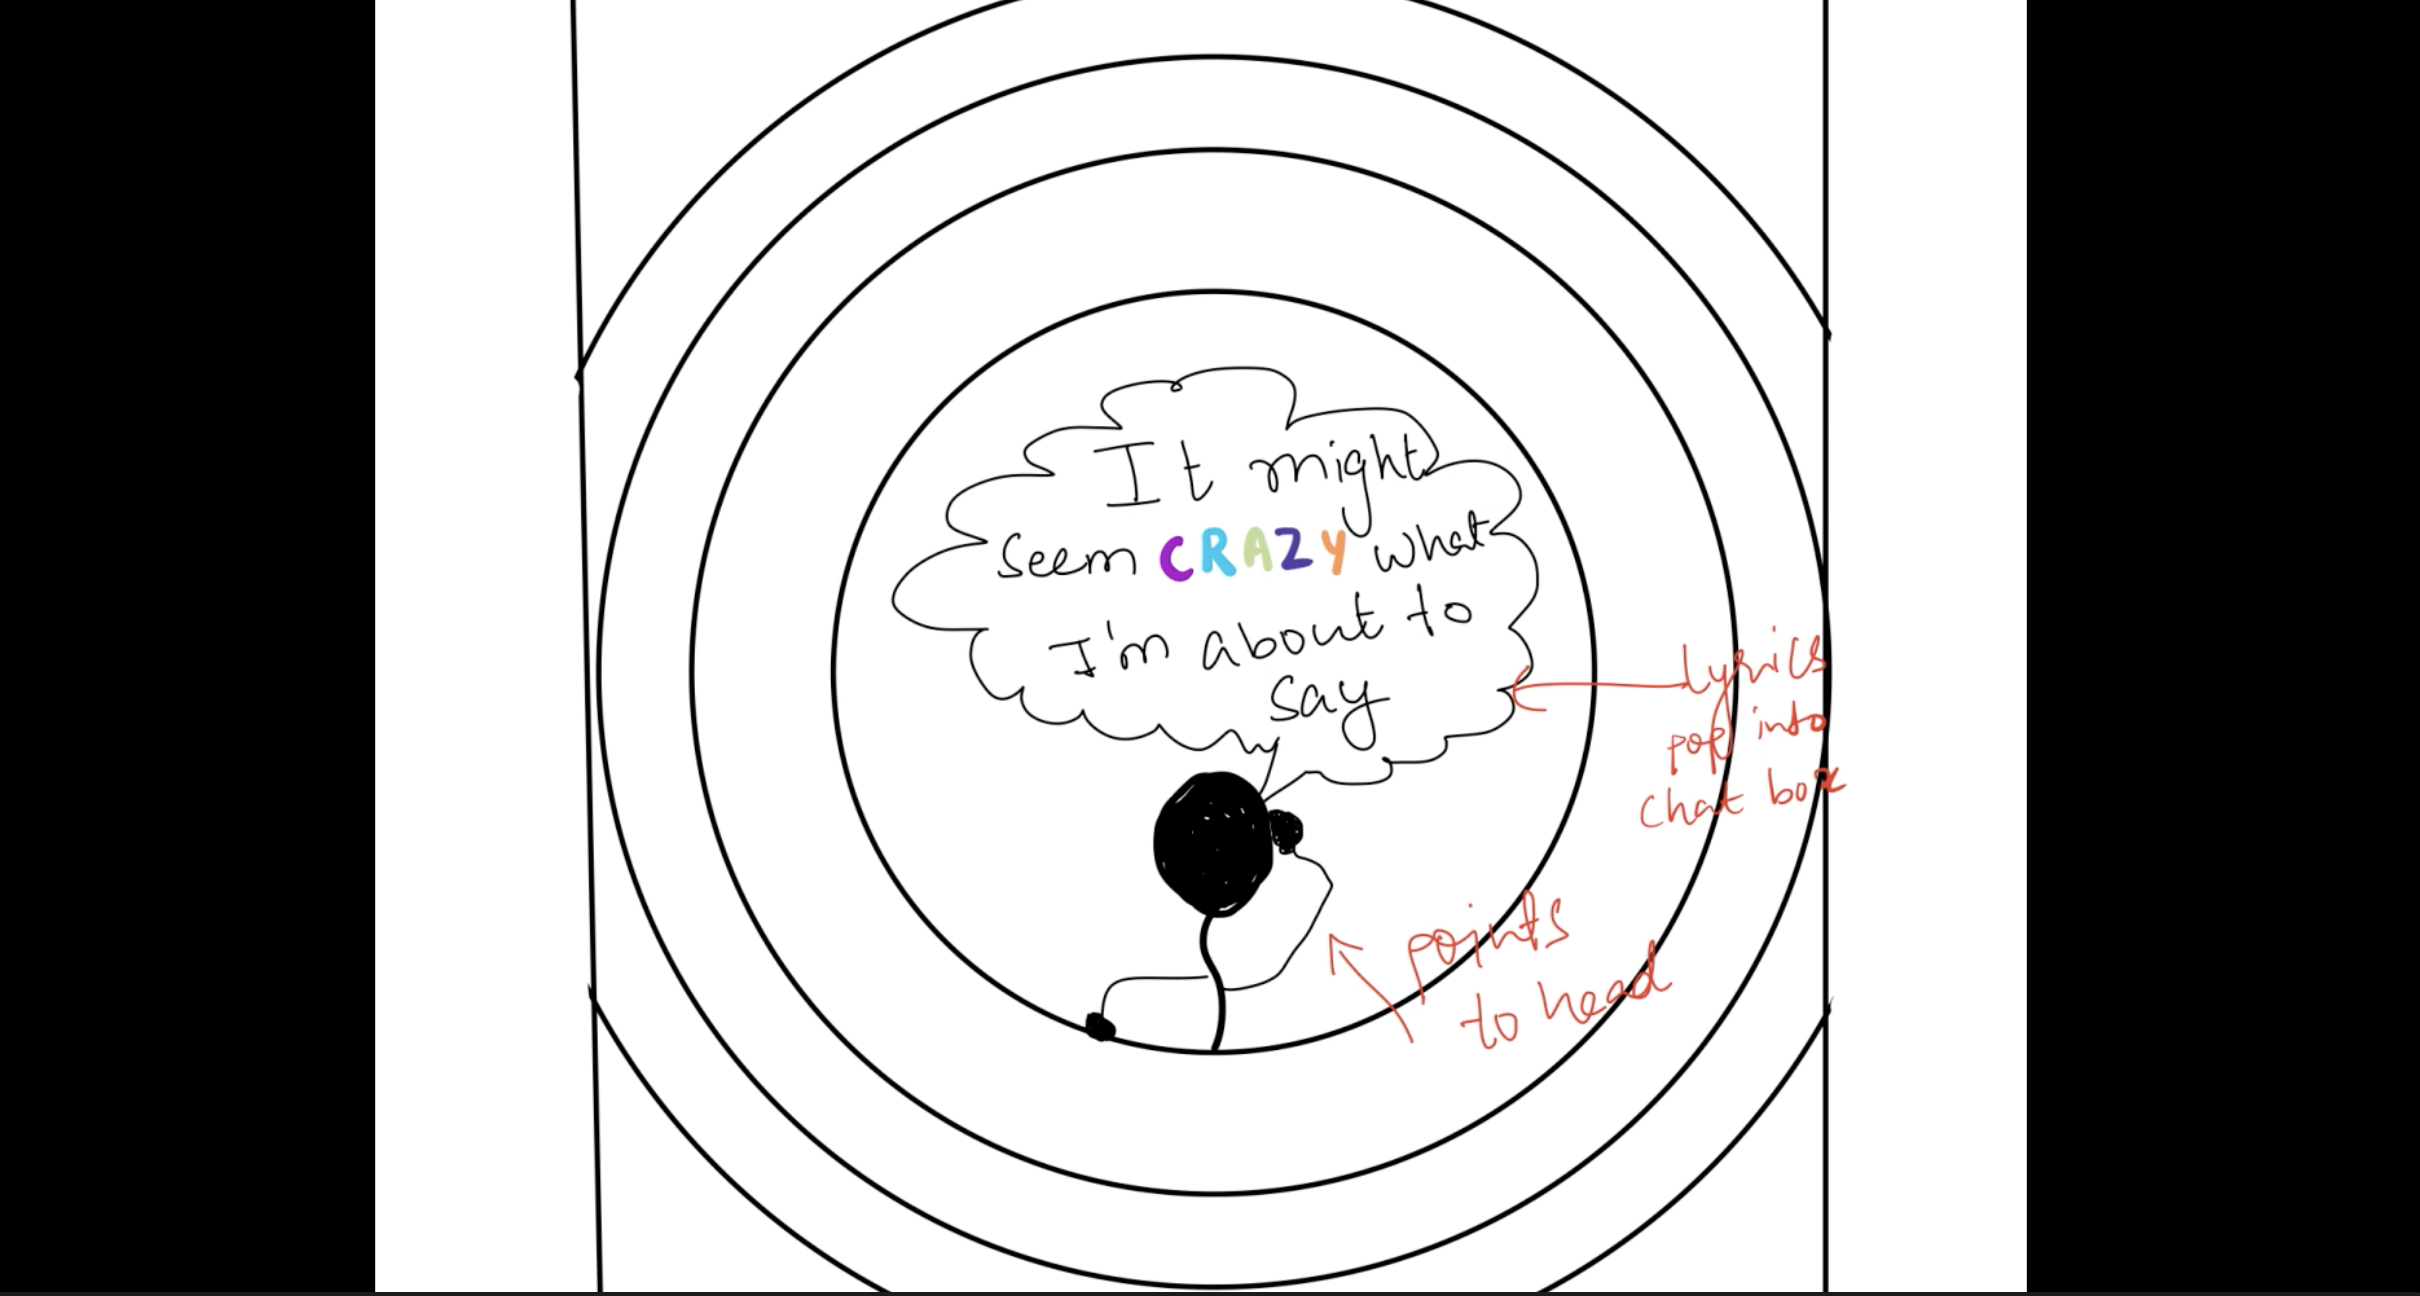 It might
seem CRAZY what
I'm about to
say
lyrics
pop into
chat box
points
to head